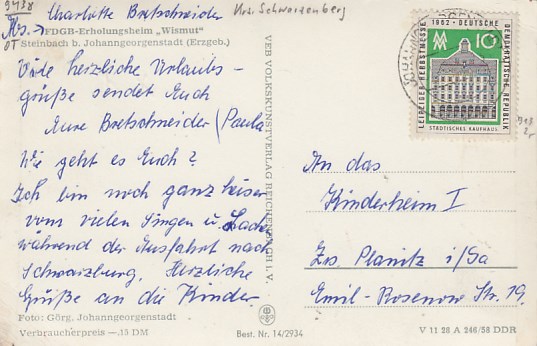 9438
Abs.: Charlotte Bretschneider
Krs. Schwarzenberg
FDGB-Erholungsheim „Wismut"
OT Steinbach b. Johanngeorgenstadt (Erzgeb.)
Viele herzliche Urlaubs-
grüße sendet Euch
Eure Bretschneider (Paula
Wie geht es Euch?
Ich bin noch ganz heiser
vom vielen Singen u.
während der Ausfahrt nach
Schwarzburg. Herzliche
Grüße an die Kinder
Foto: Görg, Johanngeorgenstadt
Verbraucherpreis —.15 DM
VEB VOLKSKUNSTVERLAG REICHENBACH I. V.
Best. Nr. 14/2934
LEIPZIGER HERBSTMESSE
1962 · DEUTSCHE
DEMOKRATISCHE REPUBLIK
MM 10
STÄDTISCHES KAUFHAUS
An das
Kinderheim I
Zw. Planitz i/Sa
Emil-Rosenow Str. 19.
V 11 28 A 246/58 DDR